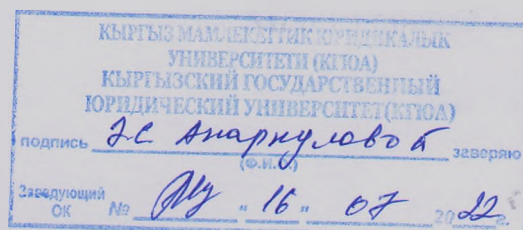 КЫРГЫЗ МАМЛЕКЕТТИК ЮРИДИКАЛЫК
УНИВЕРСИТЕТИ (КГЮА)
КЫРГЫЗСКИЙ ГОСУДАРСТВЕННЫЙ
ЮРИДИЧЕСКИЙ УНИВЕРСИТЕТ(КГЮА)
подпись Э.С Анаркуловой заверяю
(Ф.И.О.)
Заведующий
ОК № "16" 07 2022г.